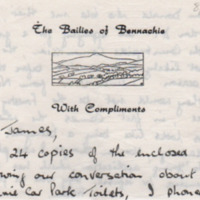 The Bailies of Bennachie
With Compliments
James,
24 copies of the enclosed
our conversation about
Car Park Toilets, I phone